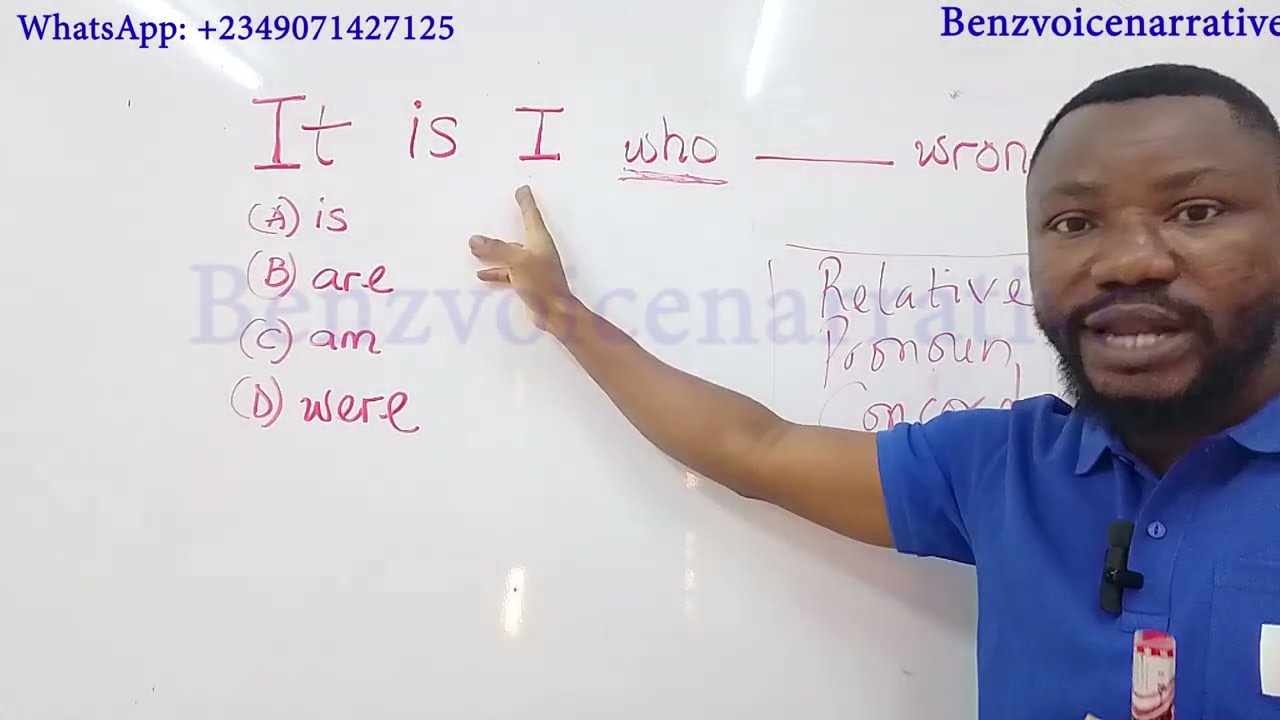 WhatsApp: +2349071427125
Benzvoicenarrative
It is I who ____ wron
(A) is
(B) are
(C) am
(D) were
Relative
Pronoun
Concord
Benzvoicenarrati